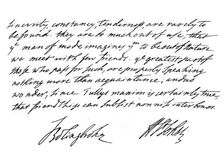 sincerity, constancy, tenderness, are rarely to
be found. they are so much out of use, that
ye man of mode imagines ym to be out of nature.
we meet with few friends. ye greatest part of
those who pass for such, are properly speaking
nothing more than acquaintance. and no
wonder, since Tullys maxim is certainly true,
that friendship can subsist non nisi inter bonos.